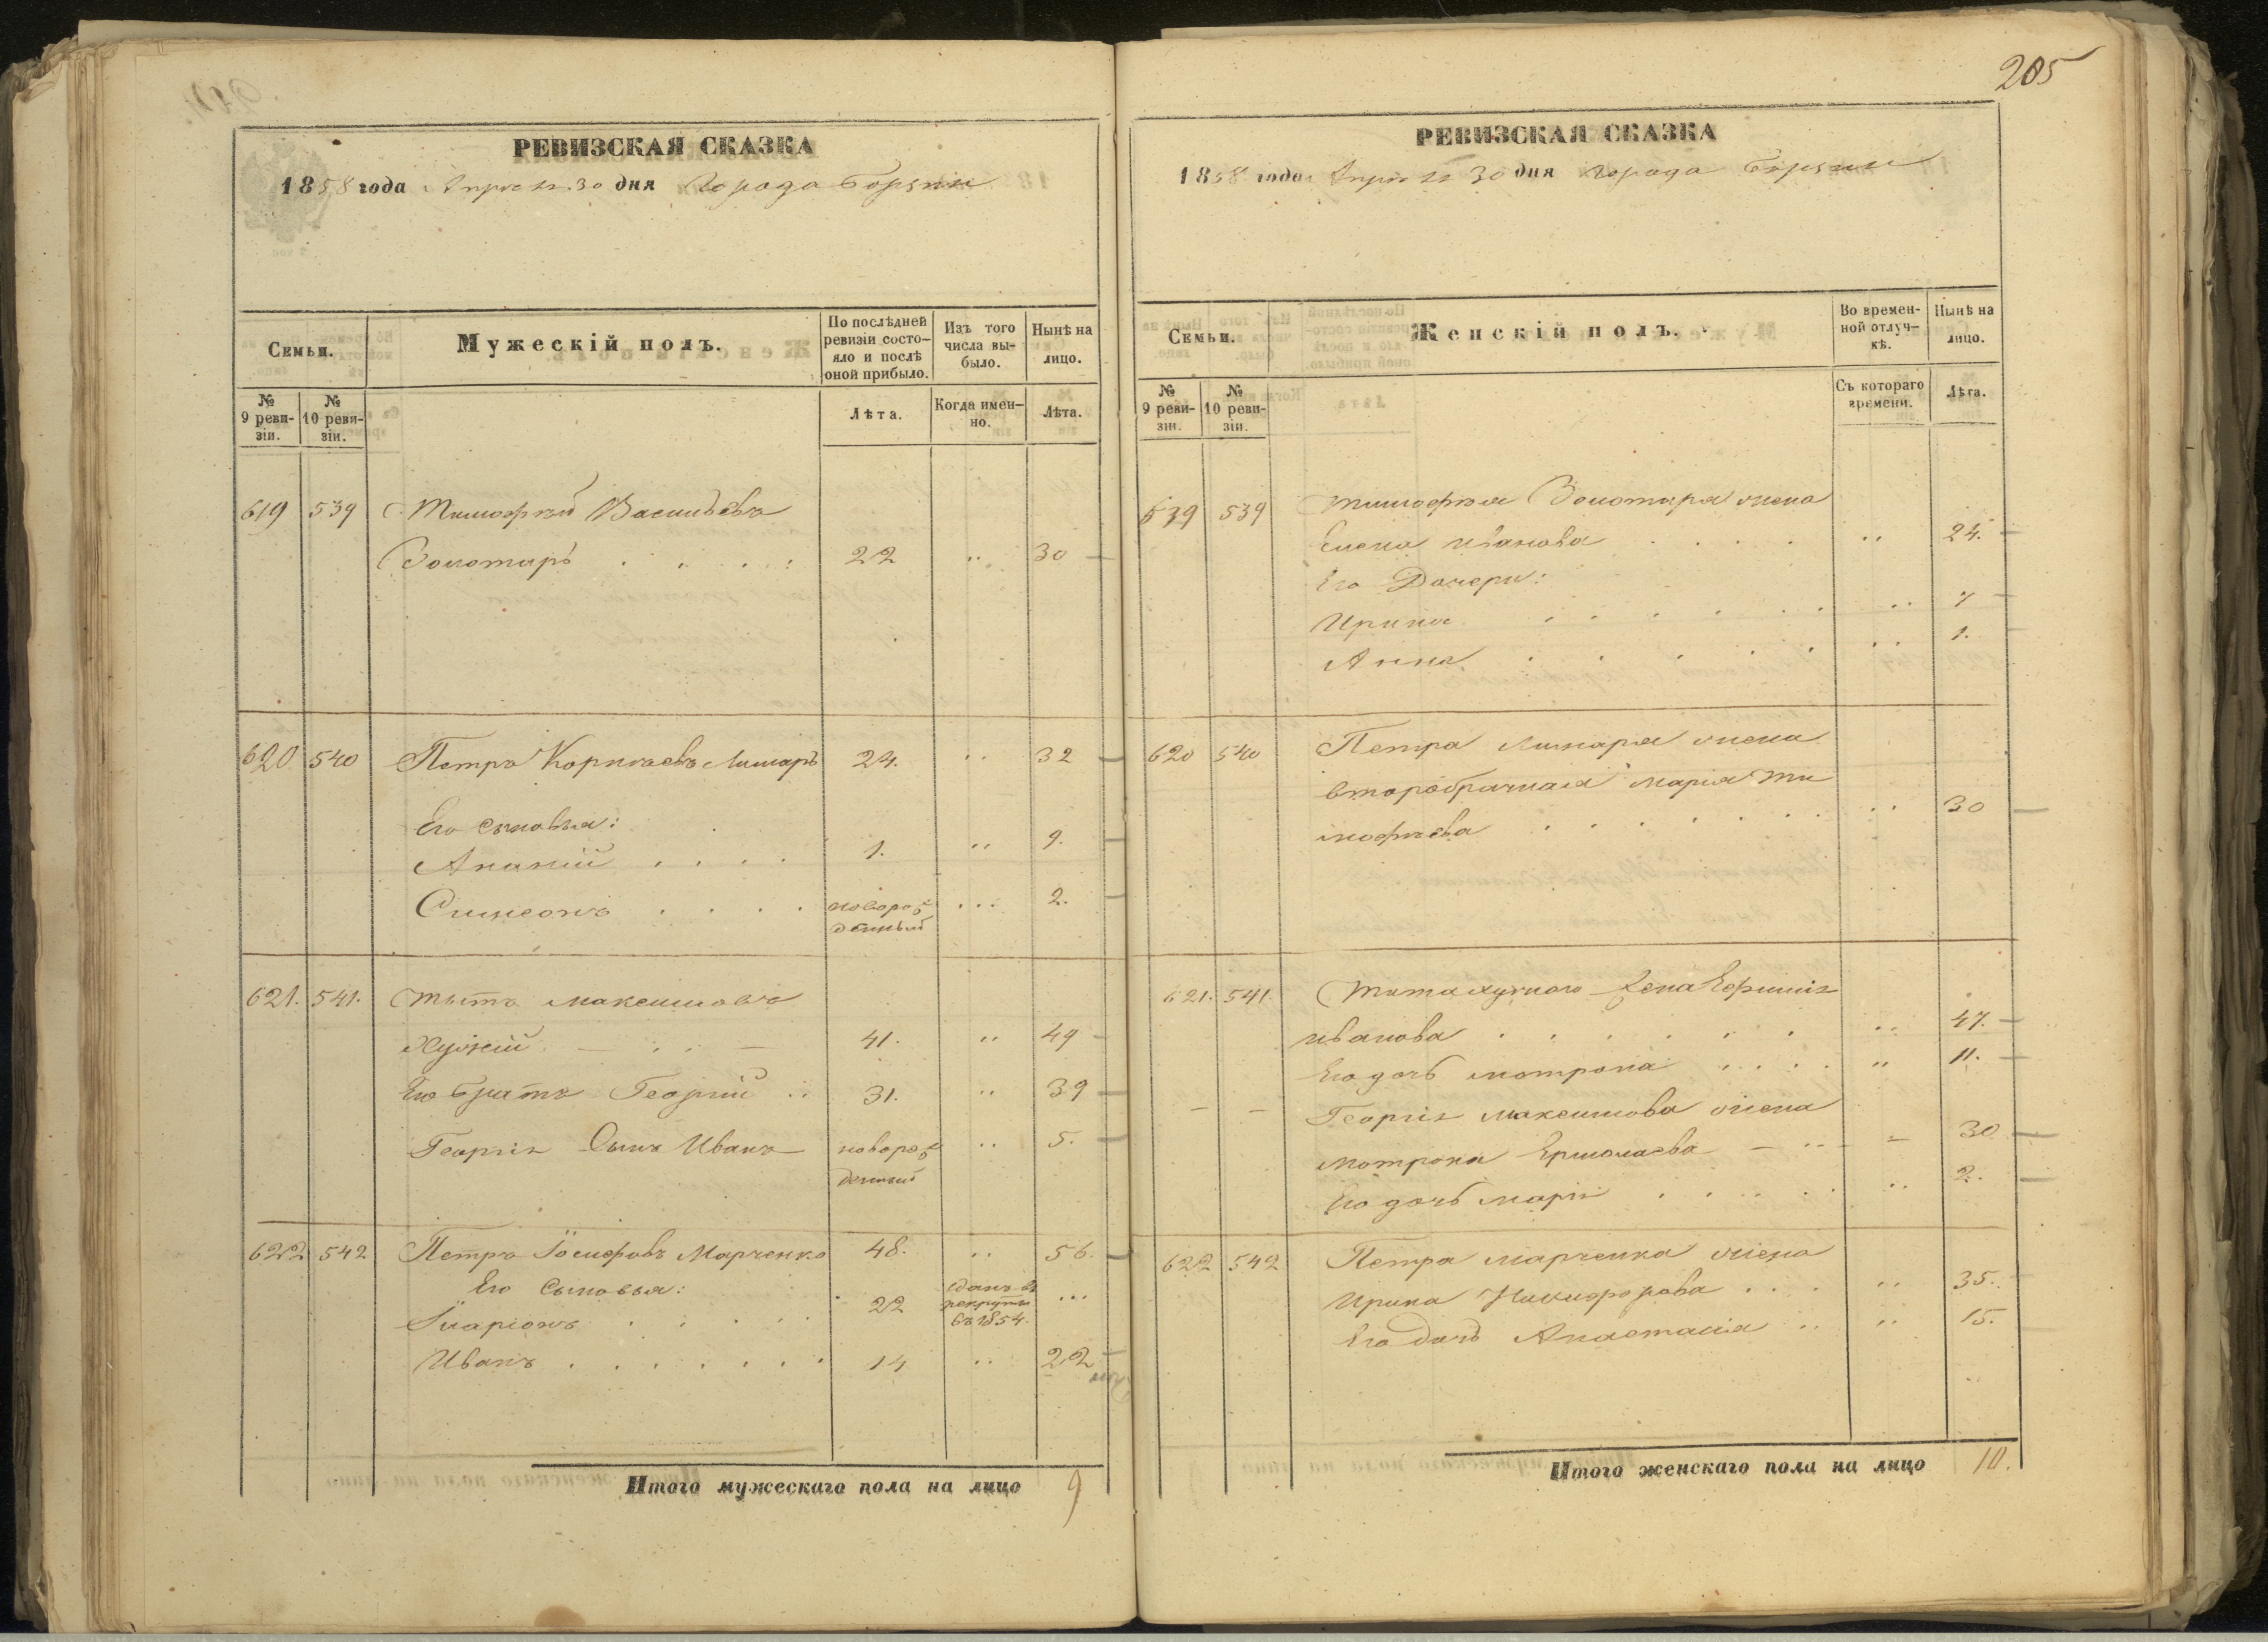 205
РЕВИЗСКАЯ СКАЗКА
1858 года Апреля 30 дня Города Борзны
Семьи.
Мужескій полъ.
По послѣдней ревизіи состо-
яло и послѣ
оной прибыло.
Изъ того
числа вы-
было.
Нынѣ на
лицо.
№
9 реви-
зіи.
№
10 реви-
зіи.
Лѣта.
Когда имен-
но.
Лѣта.
619 539 Тимофѣй Васильевъ
Золотарь 22 30
620 540 Петръ Корнѣевъ Лимарь 24. 32
Его сыновья:
Ананій 1. 9.
Симеонъ новорож
денный 2.
621. 541. Титъ Максимовъ
Хужій 41. 49
Его братъ Георгій 31. 39
Георгія Сынъ Иванъ новорож
денный 5.
622 542 Петръ Іосифовъ Марченко 48. 56.
Его Сыновья:
Іларіонъ 22 сданъ въ
рекруты
въ 1854.
Иванъ 14 22
Итого мужескаго пола на лицо 9
РЕВИЗСКАЯ СКАЗКА
1858 года Апреля 30 дня Города Борзны
Семьи.
Женскій полъ.
Во времен-
ной отлуч-
кѣ.
Нынѣ на
лицо.
№
9 реви-
зіи.
№
10 реви-
зіи.
Съ котораго
времени.
Лѣта.
639 539 Тимофѣя Золотаря жена
Елена Иванова 24.
Его Дочери:
Ирина 7
Анна 1.
620 540 Петра Лимаря жена
второбрачная Марія Ти
мофѣева 30
621. 541. Тита Хужаго жена
Иванова 47.
Его дочь Мотрона 11.
Георгія Максимова жена
Мотрона Ермолаева 30
Его дочь Марія 2.
622 542 Петра Марченка жена
Ирина Никифорова 35.
Его дочь Анастасія 15.
Итого женскаго пола на лицо 10.